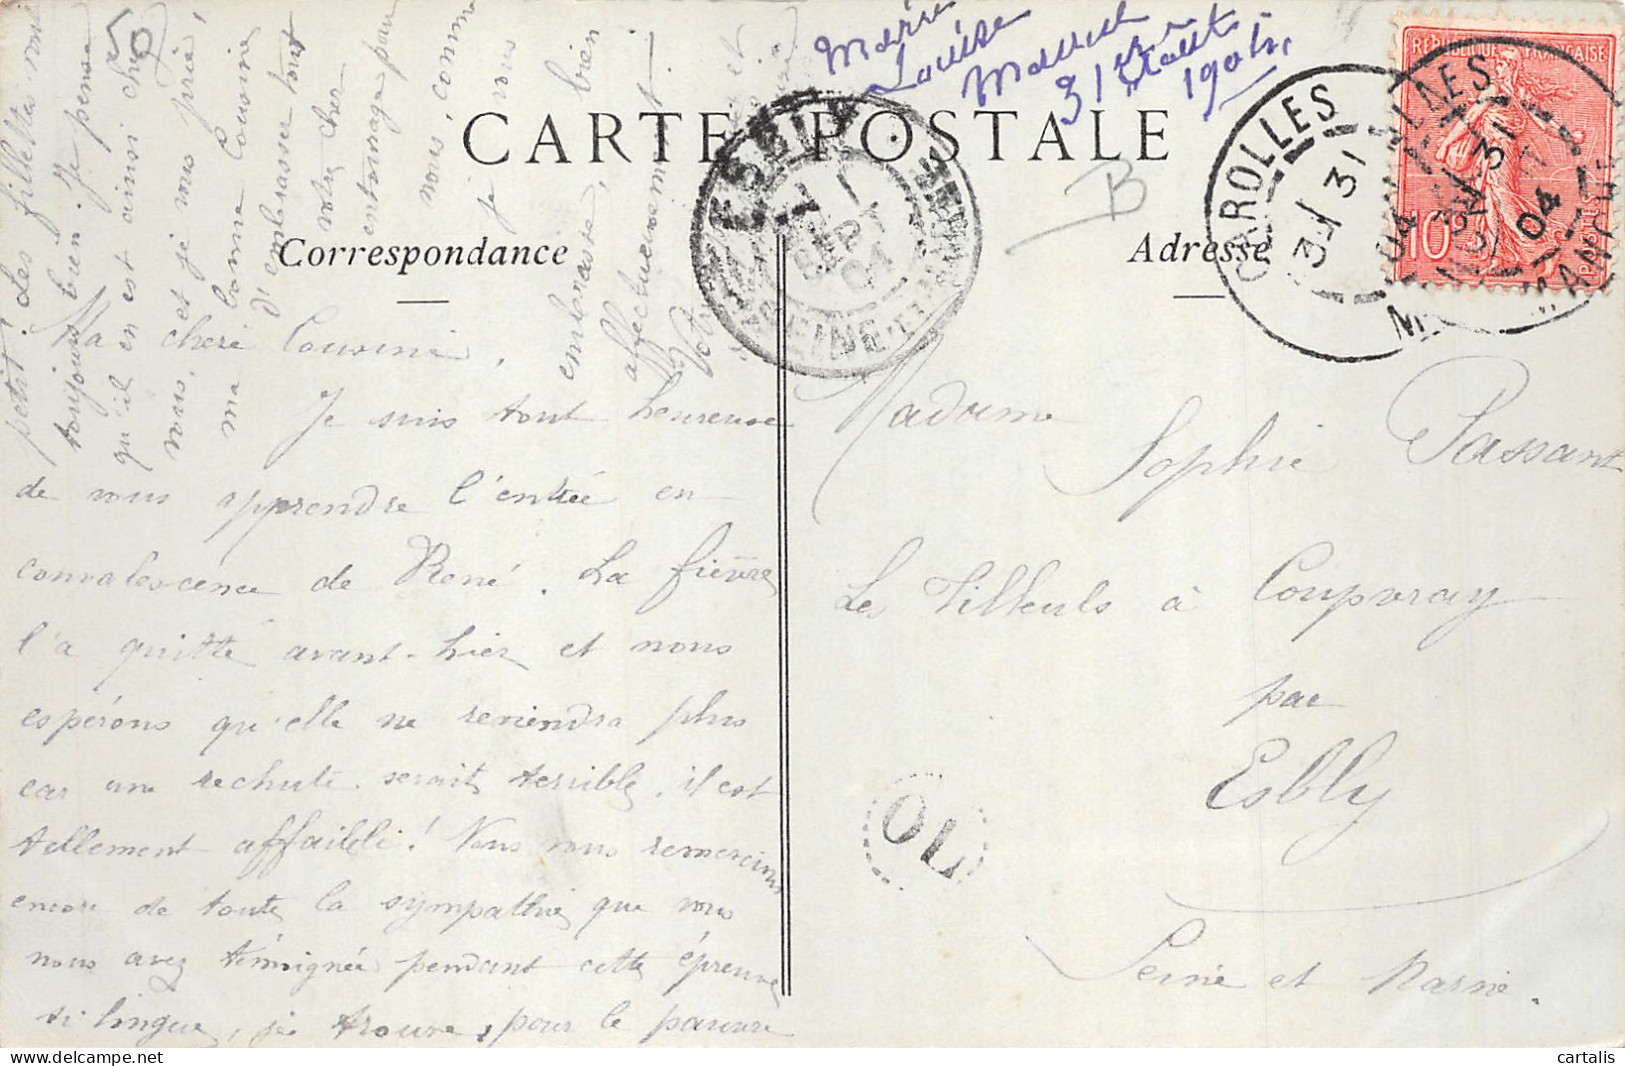 Marie
Louise
31 Aout
1904
RÉPUBLIQUE FRANÇAISE
10
POSTES
CARTE POSTALE
Correspondance
Adresse
CAROLLES
31
04
MANCHE
ESBLY
SEPT
04
SEINE-ET-MARNE
B
Ma chere Cousine,
Je suis tout heureuse
de vous apprendre l'entrée en
convalescence de René. La fièvre
l'a quitté avant-hier et nous
espérons qu'elle ne reviendra plus
car une rechute serait terrible, il est
tellement affaibli! Nous vous remercions
encore de toute la sympathie que vous
nous avez témoignée pendant cette épreuve
si longue, je trouve, pour le pauvre
petit! Les fillettes vont
toujours bien. Je pense
qu'il en est ainsi chez
vous, et je vous prie,
ma bonne Cousine
d'embrasser tout
votre cher
entourage pour
nous, comme
je vous
embrasse, bien
affectueusement
Madame
Sophie Passant
Les Tilleuls à Coupvray
par
Esbly
Seine et Marne.
OL
cartalis